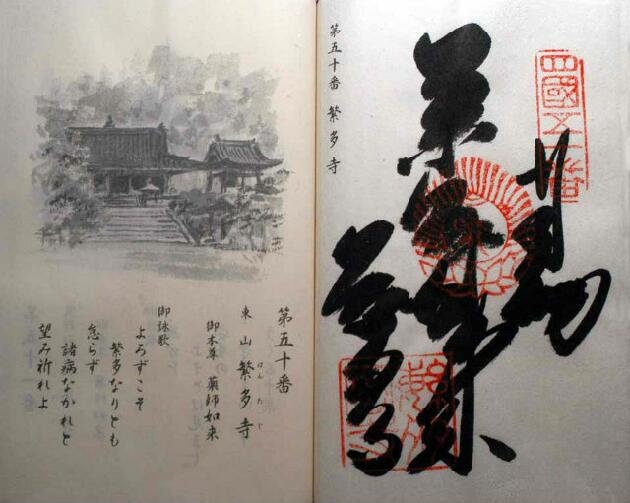 四國五十番
奉納
薬師如来
繁多寺
第五十番 繁多寺
第五十番
東山 繁多寺
はんたじ
御本尊 薬師如来
御詠歌
よろずこそ
繁多なりとも
怠らず
諸病なかれと
望み祈れよ